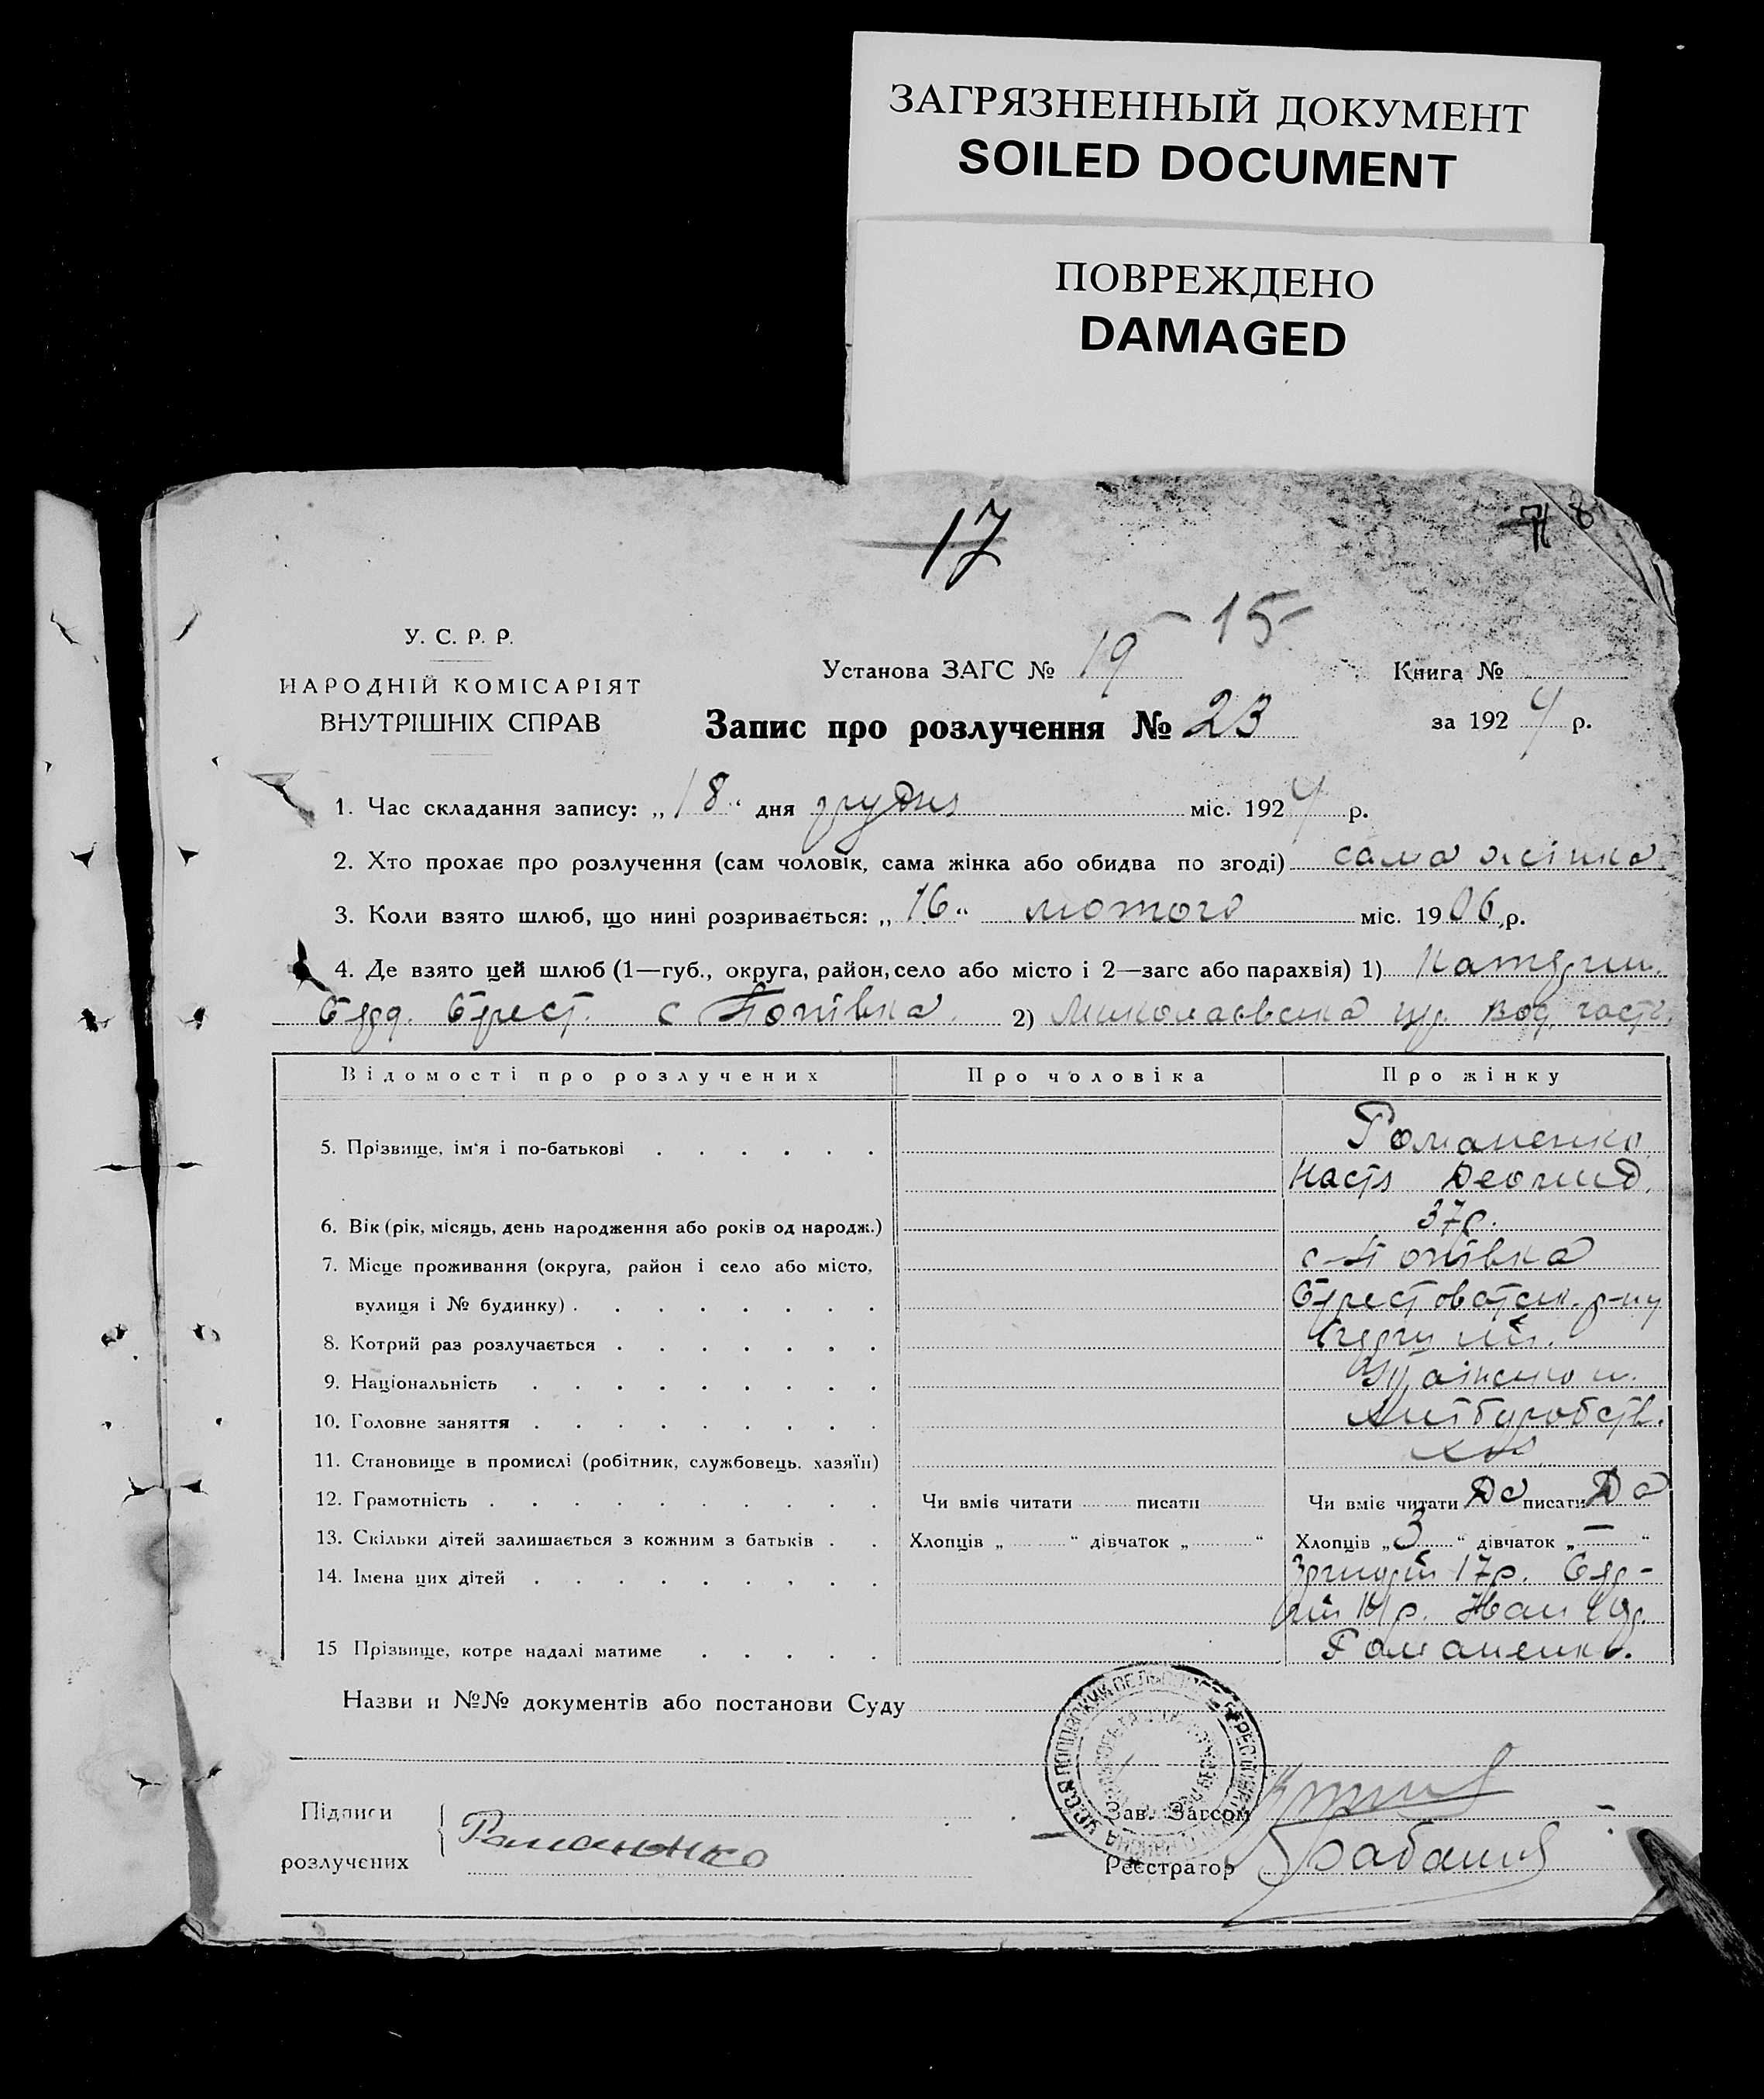 ЗАГРЯЗНЕННЫЙ ДОКУМЕНТ
SOILED DOCUMENT
ПОВРЕЖДЕНО
DAMAGED
17
8
15
У. С. Р. Р.
НАРОДНІЙ КОМІСАРІЯТ
ВНУТРІШНІХ СПРАВ
Установа ЗАГС № 19
Книга №
Запис про розлучення № 23
за 1924 р.
1. Час складання запису: „18" дня грудня міс. 1924 р.
2. Хто прохає про розлучення (сам чоловік, сама жінка або обидва по згоді) сама жінка
3. Коли взято шлюб, що нині розривається: „16" лютого міс. 1906 р.
4. Де взято цей шлюб (1—губ., округа, район, село або місто і 2—загс або парахвія) 1) Катерин.
Берд. Берест. с Попівка 2) Миколаєвська
Відомості про розлучених Про чоловіка Про жінку
5. Прізвище, ім'я і по-батькові Романенко
Настя Леонид.
6. Вік (рік, місяць, день народження або років од народж.) 37р.
7. Місце проживання (округа, район і село або місто, с Попівка
вулиця і № будинку) Берестоватск. р-ну
8. Котрий раз розлучається
9. Національність
10. Головне заняття Хліборобств.
11. Становище в промислі (робітник, службовець, хазяїн)
12. Грамотність Чи вміє читати писати Чи вміє читати Да писати Да
13. Скільки дітей залишається з кожним з батьків Хлопців „ " дівчаток „ " Хлопців „3" дівчаток „—"
14. Імена цих дітей Григорій 17р.
Іван
15 Прізвище, котре надалі матиме Романенко.
Назви и №№ документів або постанови Суду
Підписи
розлучених
Романенко
Зав. Загсом
Реєстратор